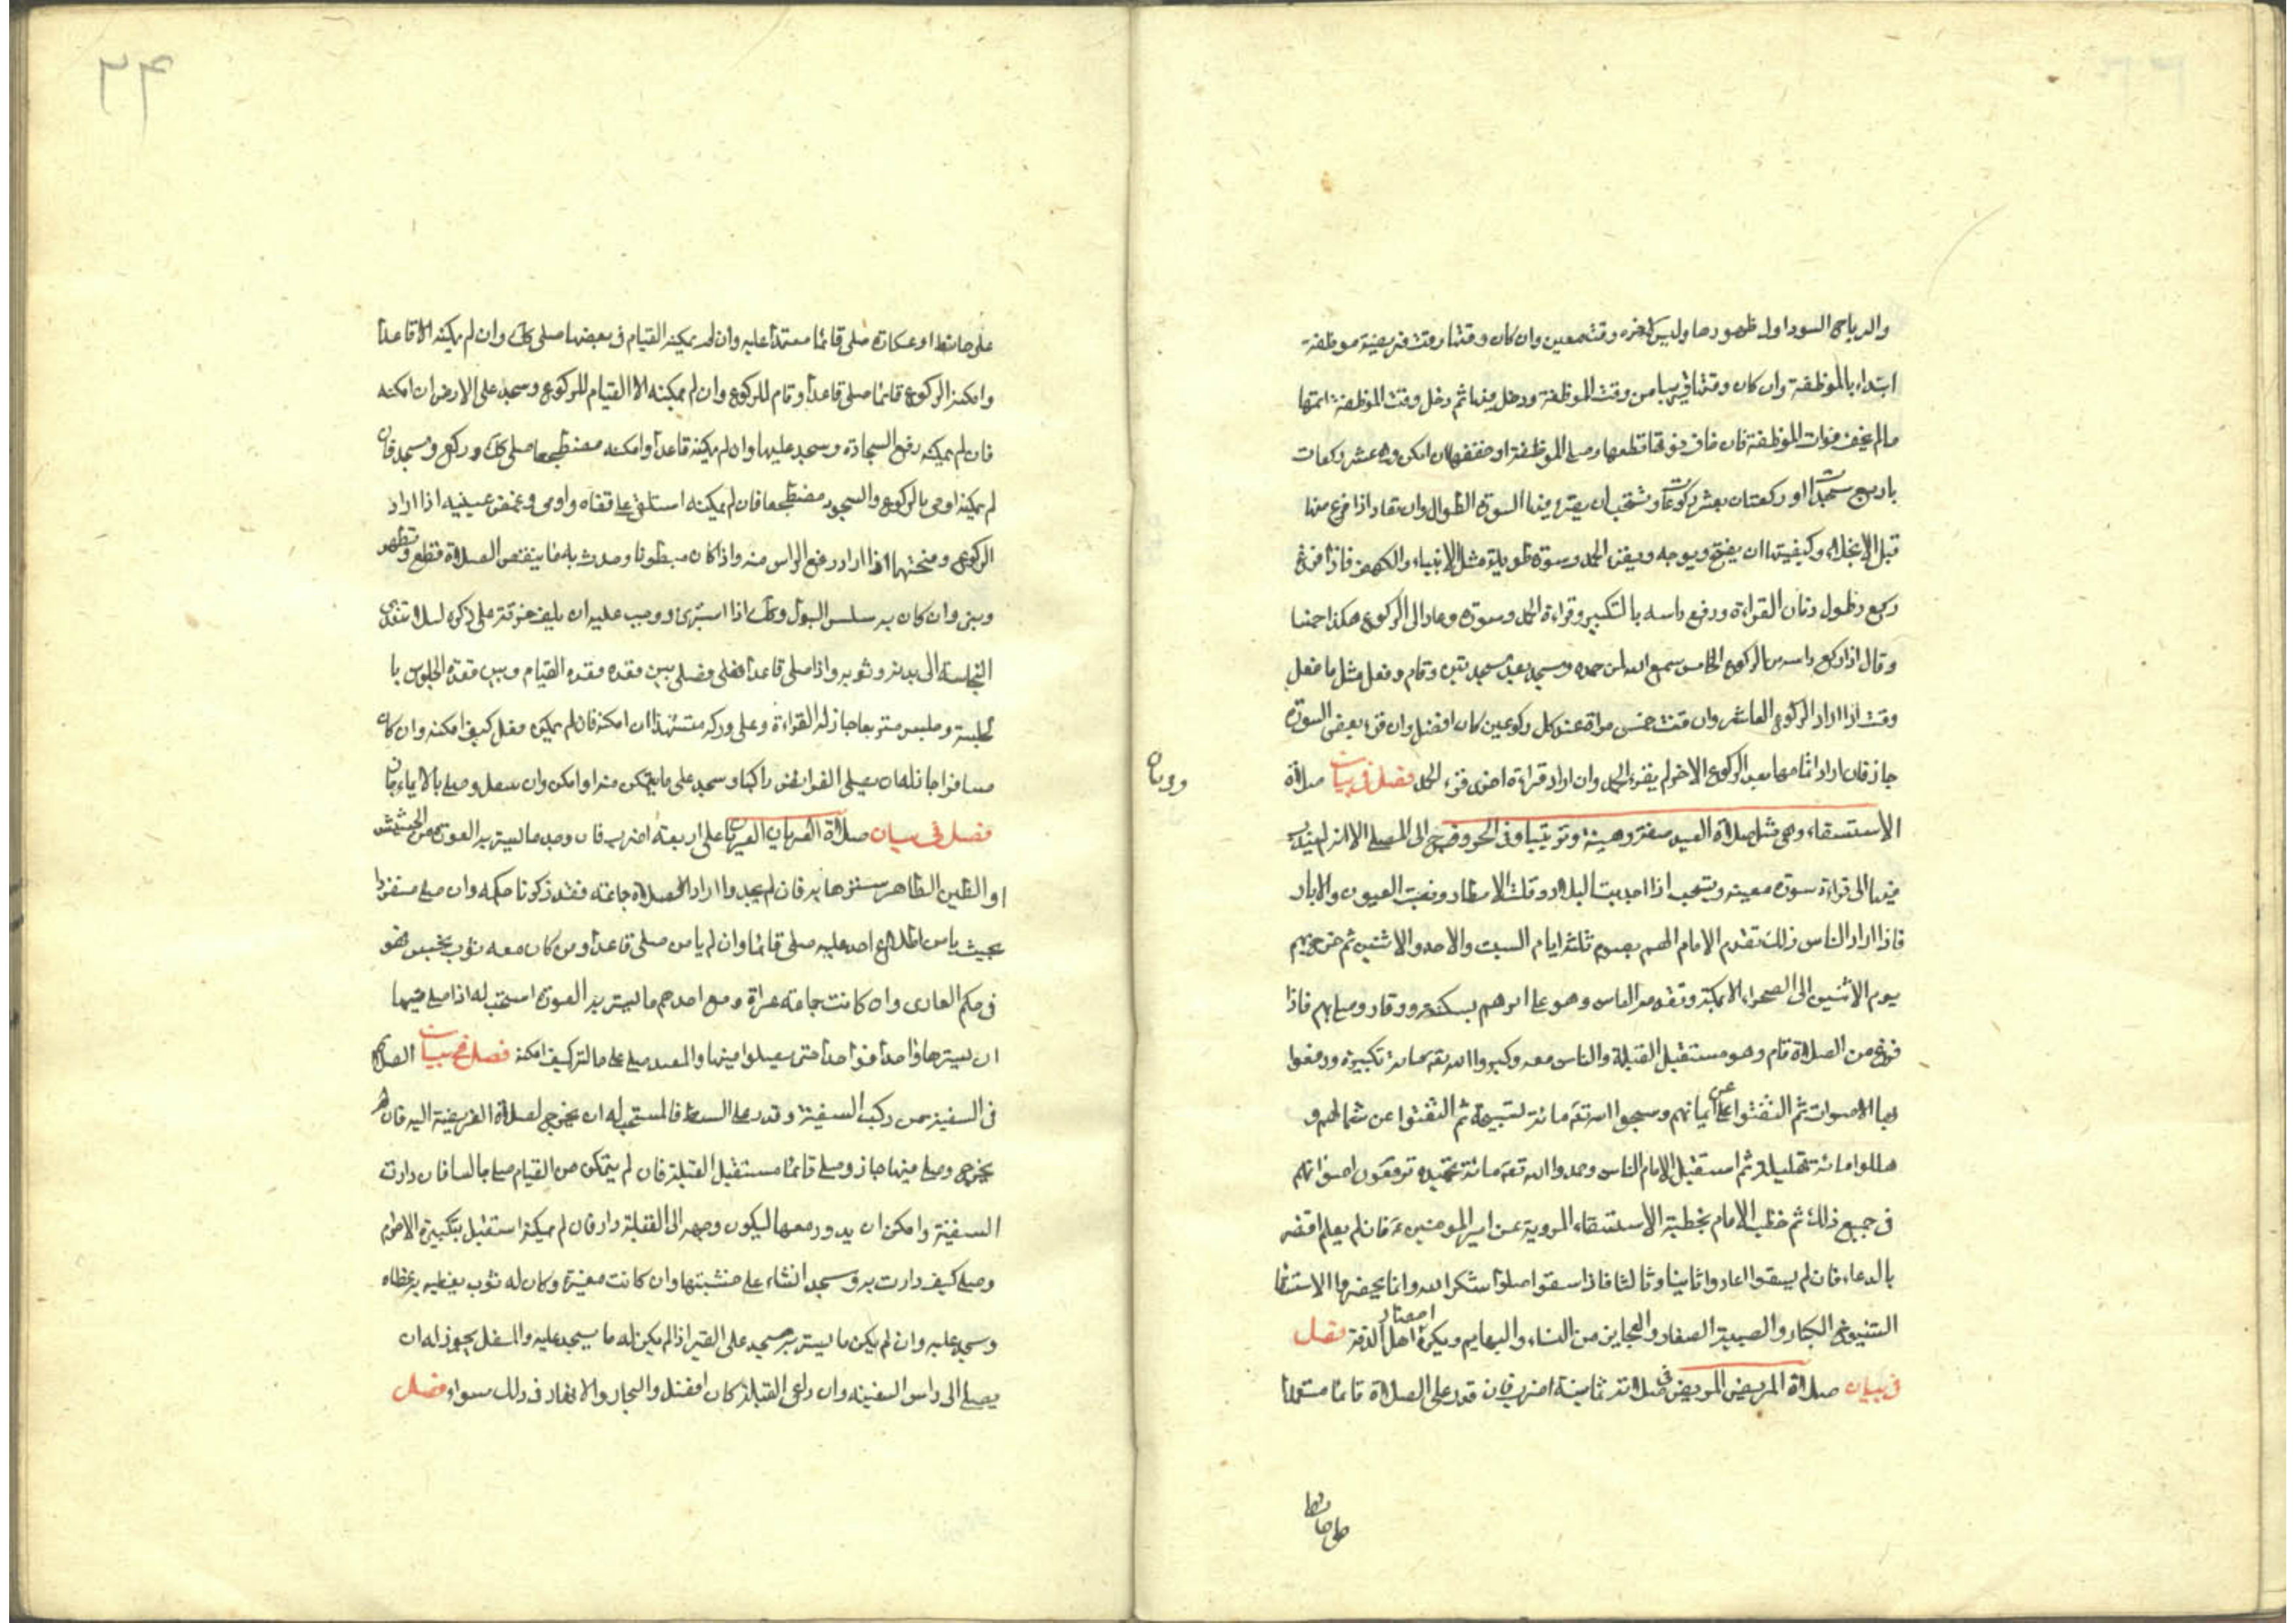 والرياح السود اول ظهورها وليس لاخره وقت معين وان كان وقتها وقت فريضة موظفة
ابتداء بالموظفة وان كان وقتها قريبا من وقت الموظفة ودخل فيها ثم دخل وقت الموظفة اتمها
مالم يخف فوات الموظفة فان خاف فوتها قطعها وصلى الموظفة او خففها ان امكن وهى عشر ركعات
باربع سجدات او ركعتان بعشر ركوعات وتستحب ان يقرء فيها السورة الطوال وان تعاد اذا فرغ منها
قبل الانجلاء وكيفيتها ان يفتح ويوجه ويقرء الحمد وسورة طويلة مثل الانبياء والكهف فاذا فرغ
ركع وطول زمان القراءة ورفع راسه بالتكبير وقراءة الحمد وسورة وعاد الى الركوع هكذا خمسا
وقال اذا رفع راسه من الركوع الخامس سمع الله لمن حمده وسجد بعد سجدتين وقام وفعل مثل ما فعل
وقنت اذا اراد الركوع العاشر وان قنت خمس مراة عند كل ركوعين كان افضل وان قرء بعض السورة
جاز فان اراد اتمامها بعد الركوع الاخر لم يقرء الحمد وان اراد قراءة اخرى قرء الحمد فصل فى بيان صلاة
الاستسقاء وهى مثل صلاة العيد صفة وهيئة وترتيبا وفى الخروج الى المصلى الا انه لم يندب
فيها الى قراءة سورة معينة ويستحب اذا اجدبت البلاد وقلت الامطار ونضبت العيون والابار
فاذا اراد الناس ذلك تقدم الامام اليهم بصوم ثلثة ايام السبت والاحد والاثنين ثم خرج بهم
يوم الاثنين الى الصحراء الا بمكة وتقدم الناس وهو على اثرهم بسكينة ووقار وصلى بهم فاذا
فرغ من الصلاة قام وهو مستقبل القبلة والناس معه وكبروا الله تعه مائة تكبيرة ورفعوا
بها الاصوات ثم التفتوا على عن ايمانهم وسبحوا الله تعه مائة تسبيحة ثم التفتوا عن شمالهم و
هللوا مائة تهليلة ثم استقبل الامام الناس وحمدوا الله تعه مائة تحميدة ترفعون اصواتهم
فى جميع ذلك ثم خطب الامام بخطبة الاستسقاء المروية عن امير المومنين ع فان لم يعلم اقتصر
بالدعاء فان لم يسقوا اعادوا ثانيا وثالثا فاذا سقوا صلوا شكرا لله وانما يحضرها الاستسقا
الشيوخ الكبار والصبية الصغار والعجايز من النساء والبهايم ويكره احضار اهل الذمة فصل
فى بيان صلاة المريض المريض فى صلاته ثمانية اضرب فان قدر على الصلاة قائما مستقلا
على حائط
٢٤
على حائط او عكازة صلى قائما معتمدا عليه وان لم يمكنه القيام فى بعضها صلى كك وان لم يمكنه الا قاعدا
وامكنه الركوع قائما صلى قاعدا وقام للركوع وان لم يمكنه الا القيام للركوع وسجد على الارض ان امكنه
فان لم يمكنه رفع السجادة وسجد عليها وان لم يمكنه قاعدا وامكنه مضطجعا صلى كك وركع وسجد فان
لم يمكنه اومى بالركوع والسجود مضطجعا فان لم يمكنه استلقى على قفاه واومى وغمض عينيه اذا اراد
الركوع وفتحها اذا اراد رفع الراس منه واذا كان مبطونا وحدث به ما ينقض الصلاة قطع وتطهر
وبنى وان كان به سلس البول وكك اذا استبرئ ووجب عليه ان يلف خرقة على ذكره لئلا تتعدى
النجاسة الى بدنه وثوبه واذا صلى قاعدا فصل بين قعدة القيام وبين قعدة الجلوس با
لجلسة وجلس متربعا جاز له القراءة وعلى وركه متشهدا ان امكنه فان لم يمكنه فعل كيف امكنه وان كان
مسافرا جاز له ان يصلى الفرائض راكبا وسجد على ما يتمكن منه او امكن وان وصلى بالايماء جاز
فصل فى بيان صلاة العريان العريان على اربعة اضرب فان وجد ما يستر به العورة من الحشيش
او الطين الطاهر سترها به فان لم يجد واراد الصلاة جماعة فقد ذكرنا حكمه وان صلى منفردا
بحيث يامن اطلاع احد عليه صلى قائما وان لم يامن صلى قاعدا ومن كان معه ثوب نجس فهو
فى حكم العارى وان كانت جماعة عراة ومع احدهم ما يستر به العورة استحب له اذا صلى فيها
ان يعيرها واحدا فواحدا حتى يصلوا فيها والمقيد صلى على حالته كيف امكنه فصل فى بيان الصلاة
فى السفينة من ركب السفينة وقدر على الشط فالمستحب له ان يخرج لصلاة الفريضة اليه فان لم
يخرج وصلى فيها جاز وصلى قائما مستقبل القبلة فان لم يتمكن من القيام صلى جالسا فان دارت
السفينة وامكن ان يدور معها ليكون وجهه الى القبلة دار فان لم يمكنه استقبل بتكبيرة الاحرام
وصلى كيف دارت به وسجد انشاء على خشبتها وان كانت مقيرة وكان له ثوب يغطيه به غطاه
وسجد عليه وان لم يكن ما يستر به سجد على القير اذا لم يكن له ما يسجد عليه والمتنفل يجوز له ان
يصلى الى راس السفينة وان راعى القبلة كان افضل والبحار والانهار فى ذلك سواء فصل